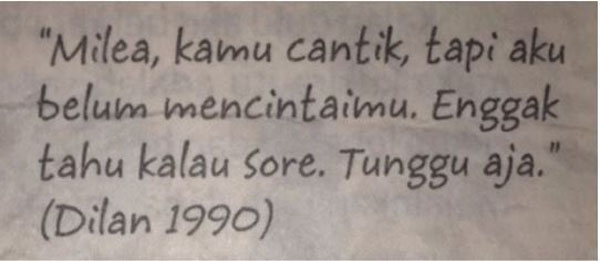 "Milea, kamu cantik, tapi aku
belum mencintaimu. Enggak
tahu kalau sore. Tunggu aja."
(Dilan 1990)